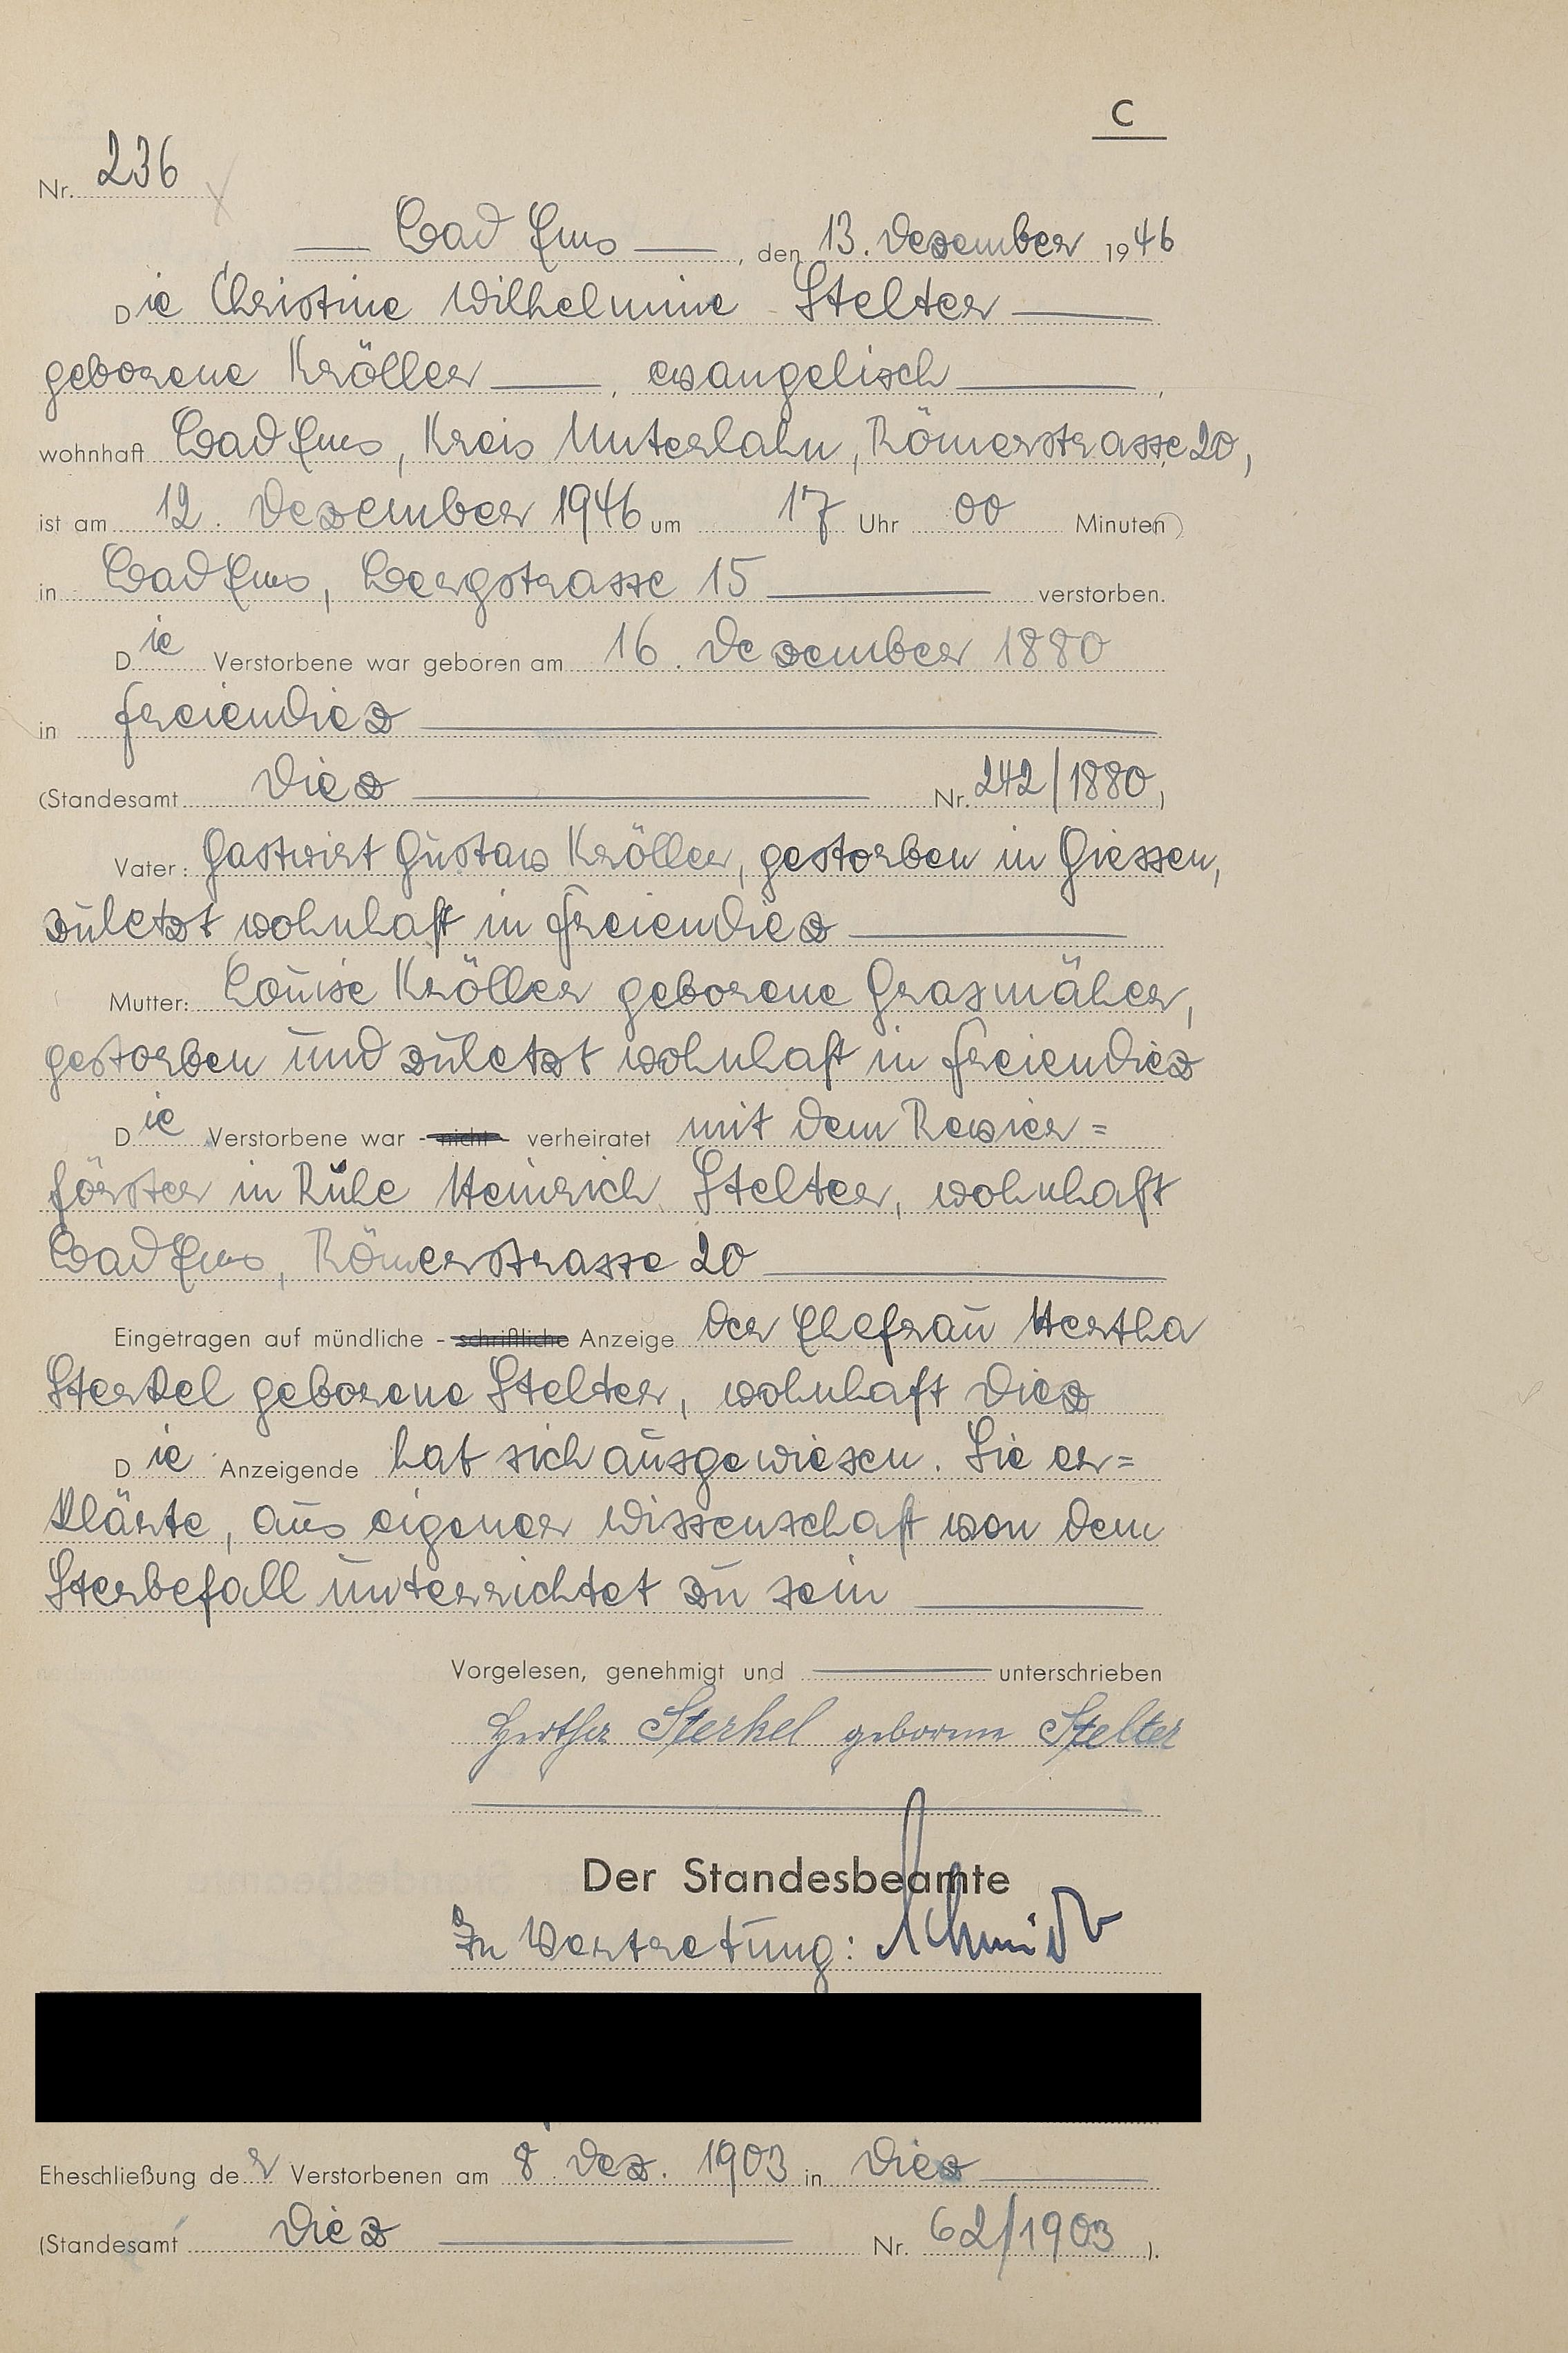 C
Nr. 236
Bad Ems, den 13. Dezember 1946
Die Christine Wilhelmine Stelter
geborene Kröller, evangelisch,
wohnhaft Bad Ems, Kreis Unterlahn, Römerstrasse 20,
ist am 12. Dezember 1946 um 17 Uhr 00 Minuten
in Bad Ems, Bergstrasse 15 verstorben.
Die Verstorbene war geboren am 16. Dezember 1880
in Freiendiez
(Standesamt Diez Nr. 242/1880)
Vater: Gastwirt Gustav Kröller, gestorben in Giessen,
zuletzt wohnhaft in Freiendiez
Mutter: Louise Kröller geborene Grasmäher,
gestorben und zuletzt wohnhaft in Freiendiez
Die Verstorbene war - nicht - verheiratet mit dem Revier=
förster in Ruhe Heinrich Stelter, wohnhaft
Bad Ems, Römerstrasse 20
Eingetragen auf mündliche - schriftliche Anzeige der Ehefrau Hertha
Sterkel geborene Stelter, wohnhaft Diez
Die Anzeigende hat sich ausgewiesen. Sie er=
klärte, aus eigener Wissenschaft von dem
Sterbefall unterrichtet zu sein
Vorgelesen, genehmigt und unterschrieben
Hertha Sterkel geborene Stelter
Der Standesbeamte
In Vertretung: Schmidt
Eheschließung der Verstorbenen am 8. Dez. 1903 in Diez
(Standesamt Diez Nr. 62/1903).